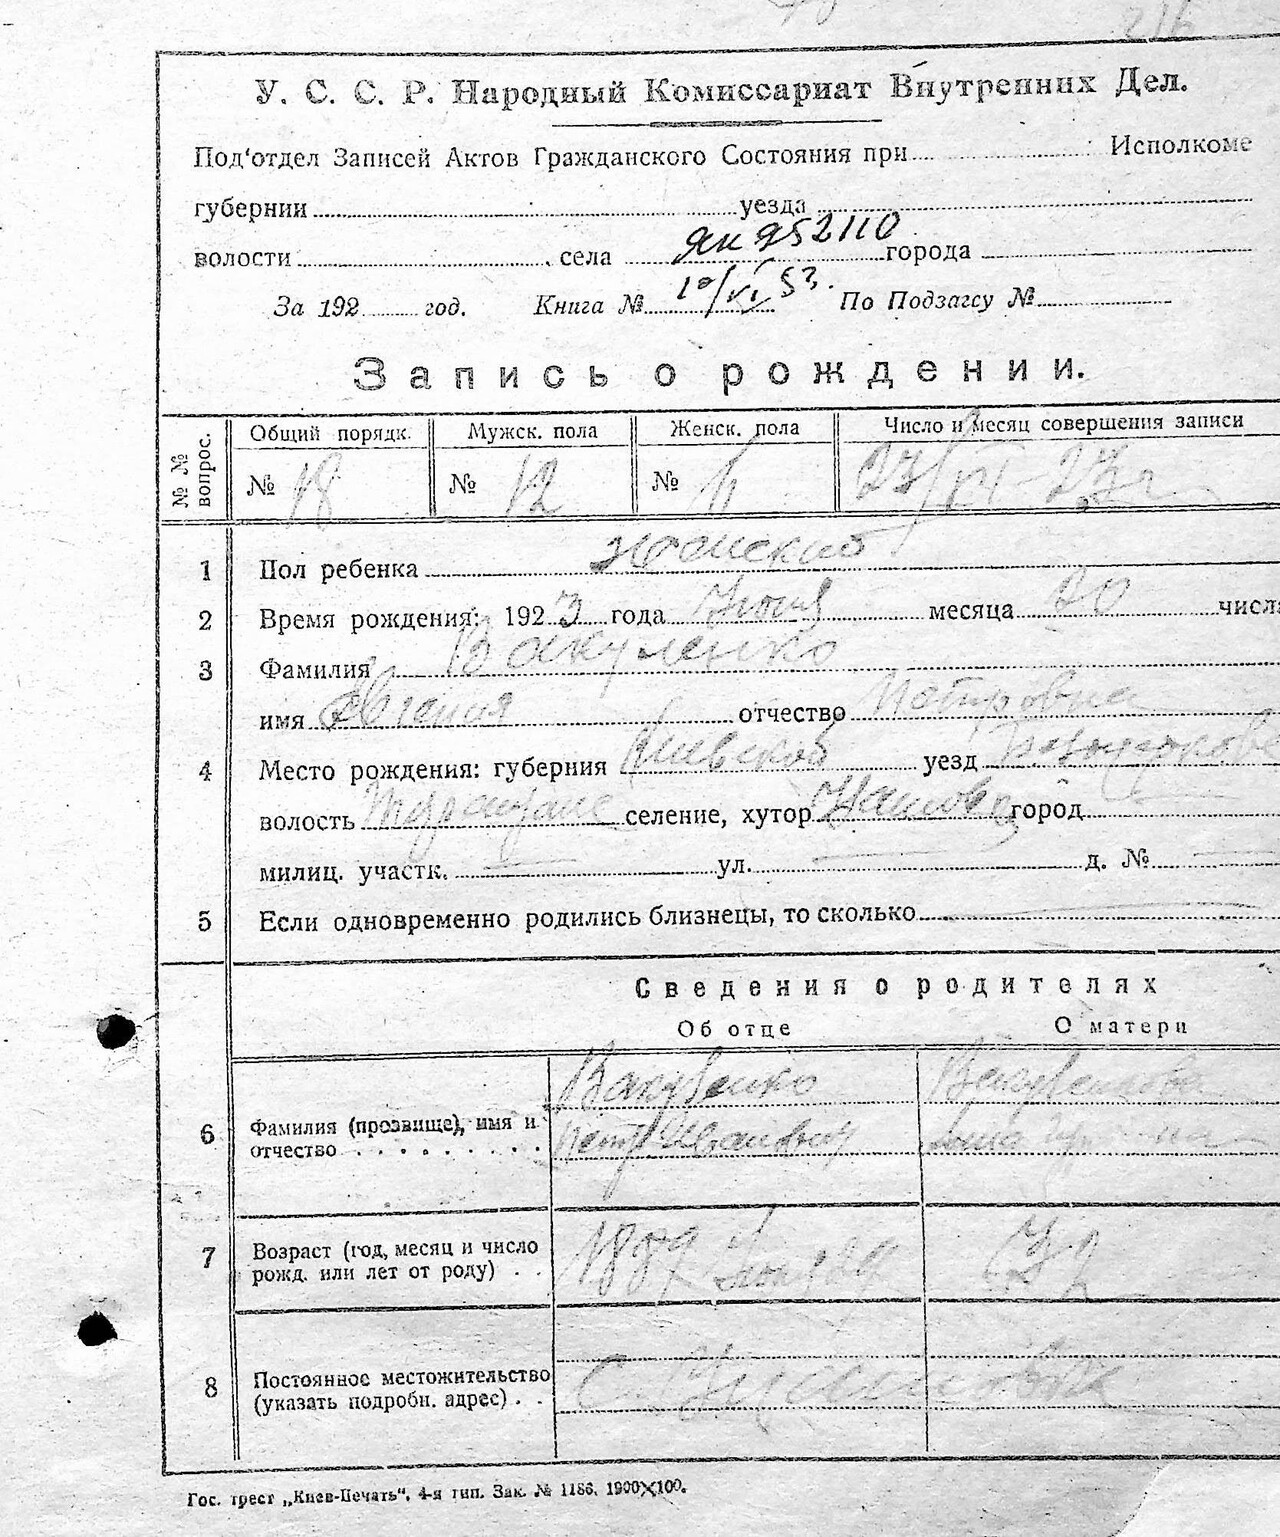 216
У. С. С. Р. Народный Комиссариат Внутренних Дел.
Под'отдел Записей Актов Гражданского Состояния при Исполкоме
губернии уезда
волости села ЯК 952110 города
За 192 год. Книга № 10/VI 53. По Подзагсу №
Запись о рождении.
№ № вопрос. Общий порядк. Мужск. пола Женск. пола Число и месяц совершения записи
№ 18 № 12 № 6 23/VI 23 г
1 Пол ребенка женский
2 Время рождения: 1923 года Июня месяца 20 числа
3 Фамилия Вакуленко
имя Евгения отчество Петровна
4 Место рождения: губерния Киевской уезд
волость селение, хутор город
милиц. участк. ул. д. №
5 Если одновременно родились близнецы, то сколько
Сведения о родителях
Об отце О матери
6 Фамилия (прозвище), имя и отчество Вакуленко Петр Иванович Анна
7 Возраст (год, месяц и число рожд. или лет от роду) 1889 29 32
8 Постоянное местожительство (указать подробн. адрес) С.
Гос. трест „Киев-Печать“, 4-я тип. Зак. № 1186. 1900×100.